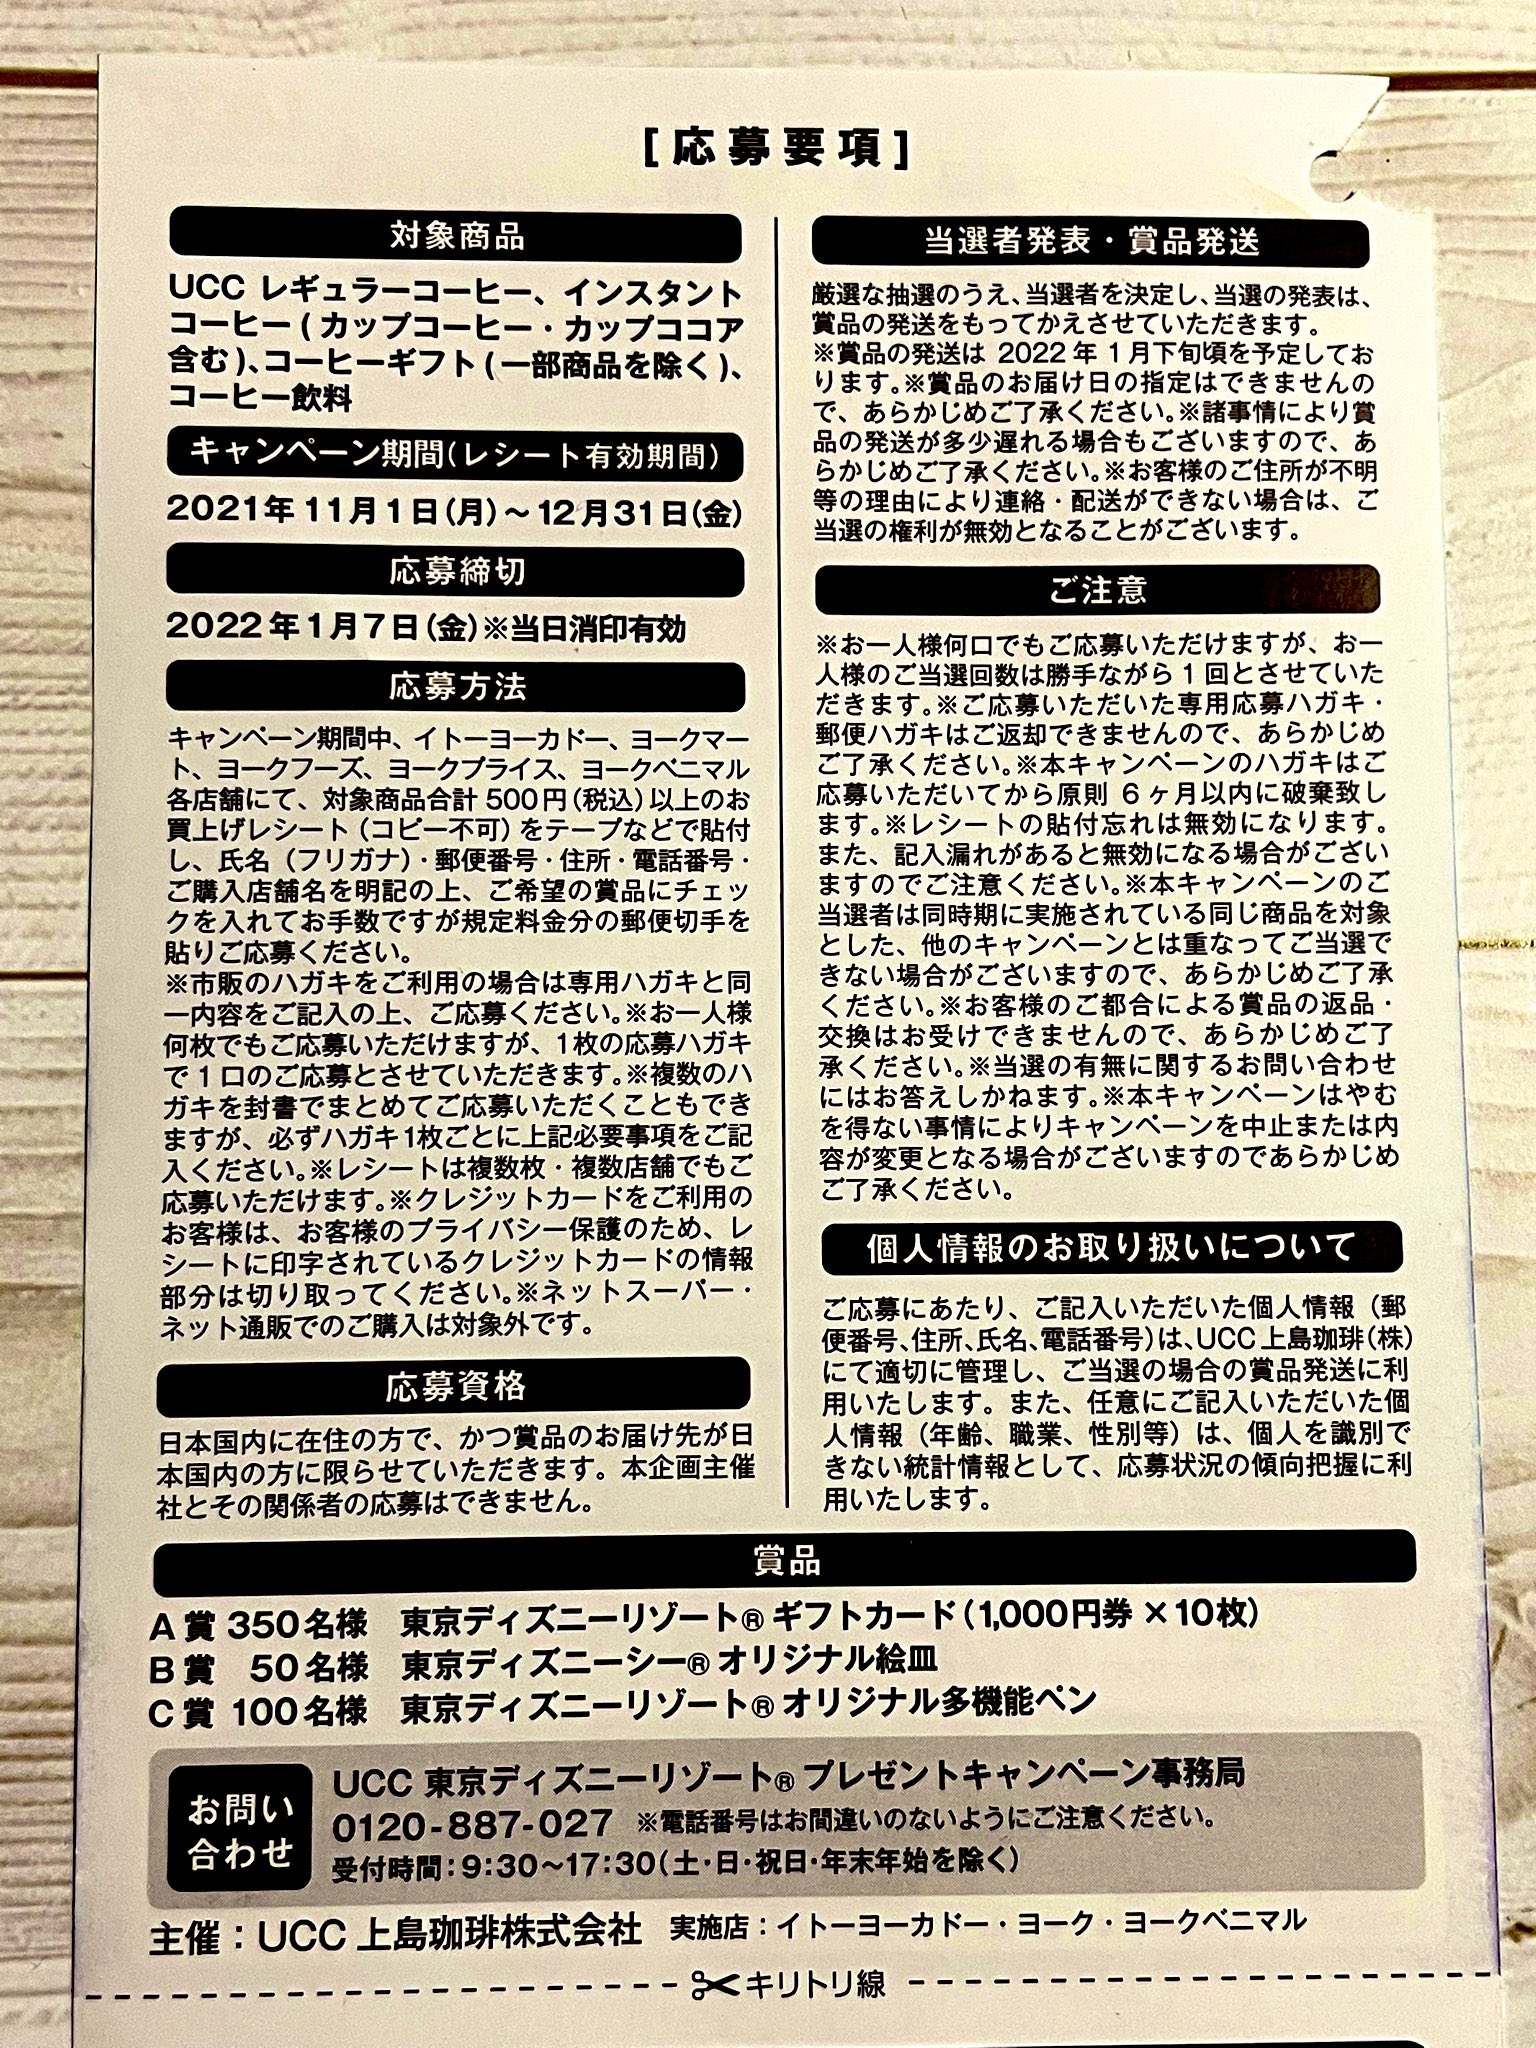 [応募要項]
対象商品
UCC レギュラーコーヒー、インスタント
コーヒー(カップコーヒー・カップココア
含む)、コーヒーギフト(一部商品を除く)、
コーヒー飲料
キャンペーン期間(レシート有効期間)
2021年11月1日(月)～12月31日(金)
応募締切
2022年1月7日(金)※当日消印有効
応募方法
キャンペーン期間中、イトーヨーカドー、ヨークマー
ト、ヨークフーズ、ヨークプライス、ヨークベニマル
各店舗にて、対象商品合計500円(税込)以上のお
買上げレシート(コピー不可)をテープなどで貼付
し、氏名(フリガナ)・郵便番号・住所・電話番号・
ご購入店舗名を明記の上、ご希望の賞品にチェッ
クを入れてお手数ですが規定料金分の郵便切手を
貼りご応募ください。
※市販のハガキをご利用の場合は専用ハガキと同
一内容をご記入の上、ご応募ください。※お一人様
何枚でもご応募いただけますが、1枚の応募ハガキ
で1口のご応募とさせていただきます。※複数のハ
ガキを封書でまとめてご応募いただくこともでき
ますが、必ずハガキ1枚ごとに上記必要事項をご記
入ください。※レシートは複数枚・複数店舗でもご
応募いただけます。※クレジットカードをご利用の
お客様は、お客様のプライバシー保護のため、レ
シートに印字されているクレジットカードの情報
部分は切り取ってください。※ネットスーパー・
ネット通販でのご購入は対象外です。
応募資格
日本国内に在住の方で、かつ賞品のお届け先が日
本国内の方に限らせていただきます。本企画主催
社とその関係者の応募はできません。
当選者発表・賞品発送
厳選な抽選のうえ、当選者を決定し、当選の発表は、
賞品の発送をもってかえさせていただきます。
※賞品の発送は 2022年1月下旬頃を予定してお
ります。※賞品のお届け日の指定はできませんの
で、あらかじめご了承ください。※諸事情により賞
品の発送が多少遅れる場合もございますので、あ
らかじめご了承ください。※お客様のご住所が不明
等の理由により連絡・配送ができない場合は、ご
当選の権利が無効となることがございます。
ご注意
※お一人様何口でもご応募いただけますが、お一
人様のご当選回数は勝手ながら1回とさせていた
だきます。※ご応募いただいた専用応募ハガキ・
郵便ハガキはご返却できませんので、あらかじめ
ご了承ください。※本キャンペーンのハガキはご
応募いただいてから原則 6ヶ月以内に破棄致し
ます。※レシートの貼付忘れは無効になります。
また、記入漏れがあると無効になる場合がござい
ますのでご注意ください。※本キャンペーンのご
当選者は同時期に実施されている同じ商品を対象
とした、他のキャンペーンとは重なってご当選で
きない場合がございますので、あらかじめご了承
ください。※お客様のご都合による賞品の返品・
交換はお受けできませんので、あらかじめご了
承ください。※当選の有無に関するお問い合わせ
にはお答えしかねます。※本キャンペーンはやむ
を得ない事情によりキャンペーンを中止または内
容が変更となる場合がございますのであらかじめ
ご了承ください。
個人情報のお取り扱いについて
ご応募にあたり、ご記入いただいた個人情報(郵
便番号、住所、氏名、電話番号)は、UCC上島珈琲(株)
にて適切に管理し、ご当選の場合の賞品発送に利
用いたします。また、任意にご記入いただいた個
人情報(年齢、職業、性別等)は、個人を識別で
きない統計情報として、応募状況の傾向把握に利
用いたします。
賞品
A賞 350名様 東京ディズニーリゾート®ギフトカード(1,000円券×10枚)
B賞 50名様 東京ディズニーシー®オリジナル絵皿
C賞 100名様 東京ディズニーリゾート®オリジナル多機能ペン
お問い
合わせ
UCC 東京ディズニーリゾート®プレゼントキャンペーン事務局
0120-887-027 ※電話番号はお間違いのないようにご注意ください。
受付時間：9：30～17：30(土・日・祝日・年末年始を除く)
主催：UCC上島珈琲株式会社 実施店：イトーヨーカドー・ヨーク・ヨークベニマル
キリトリ線